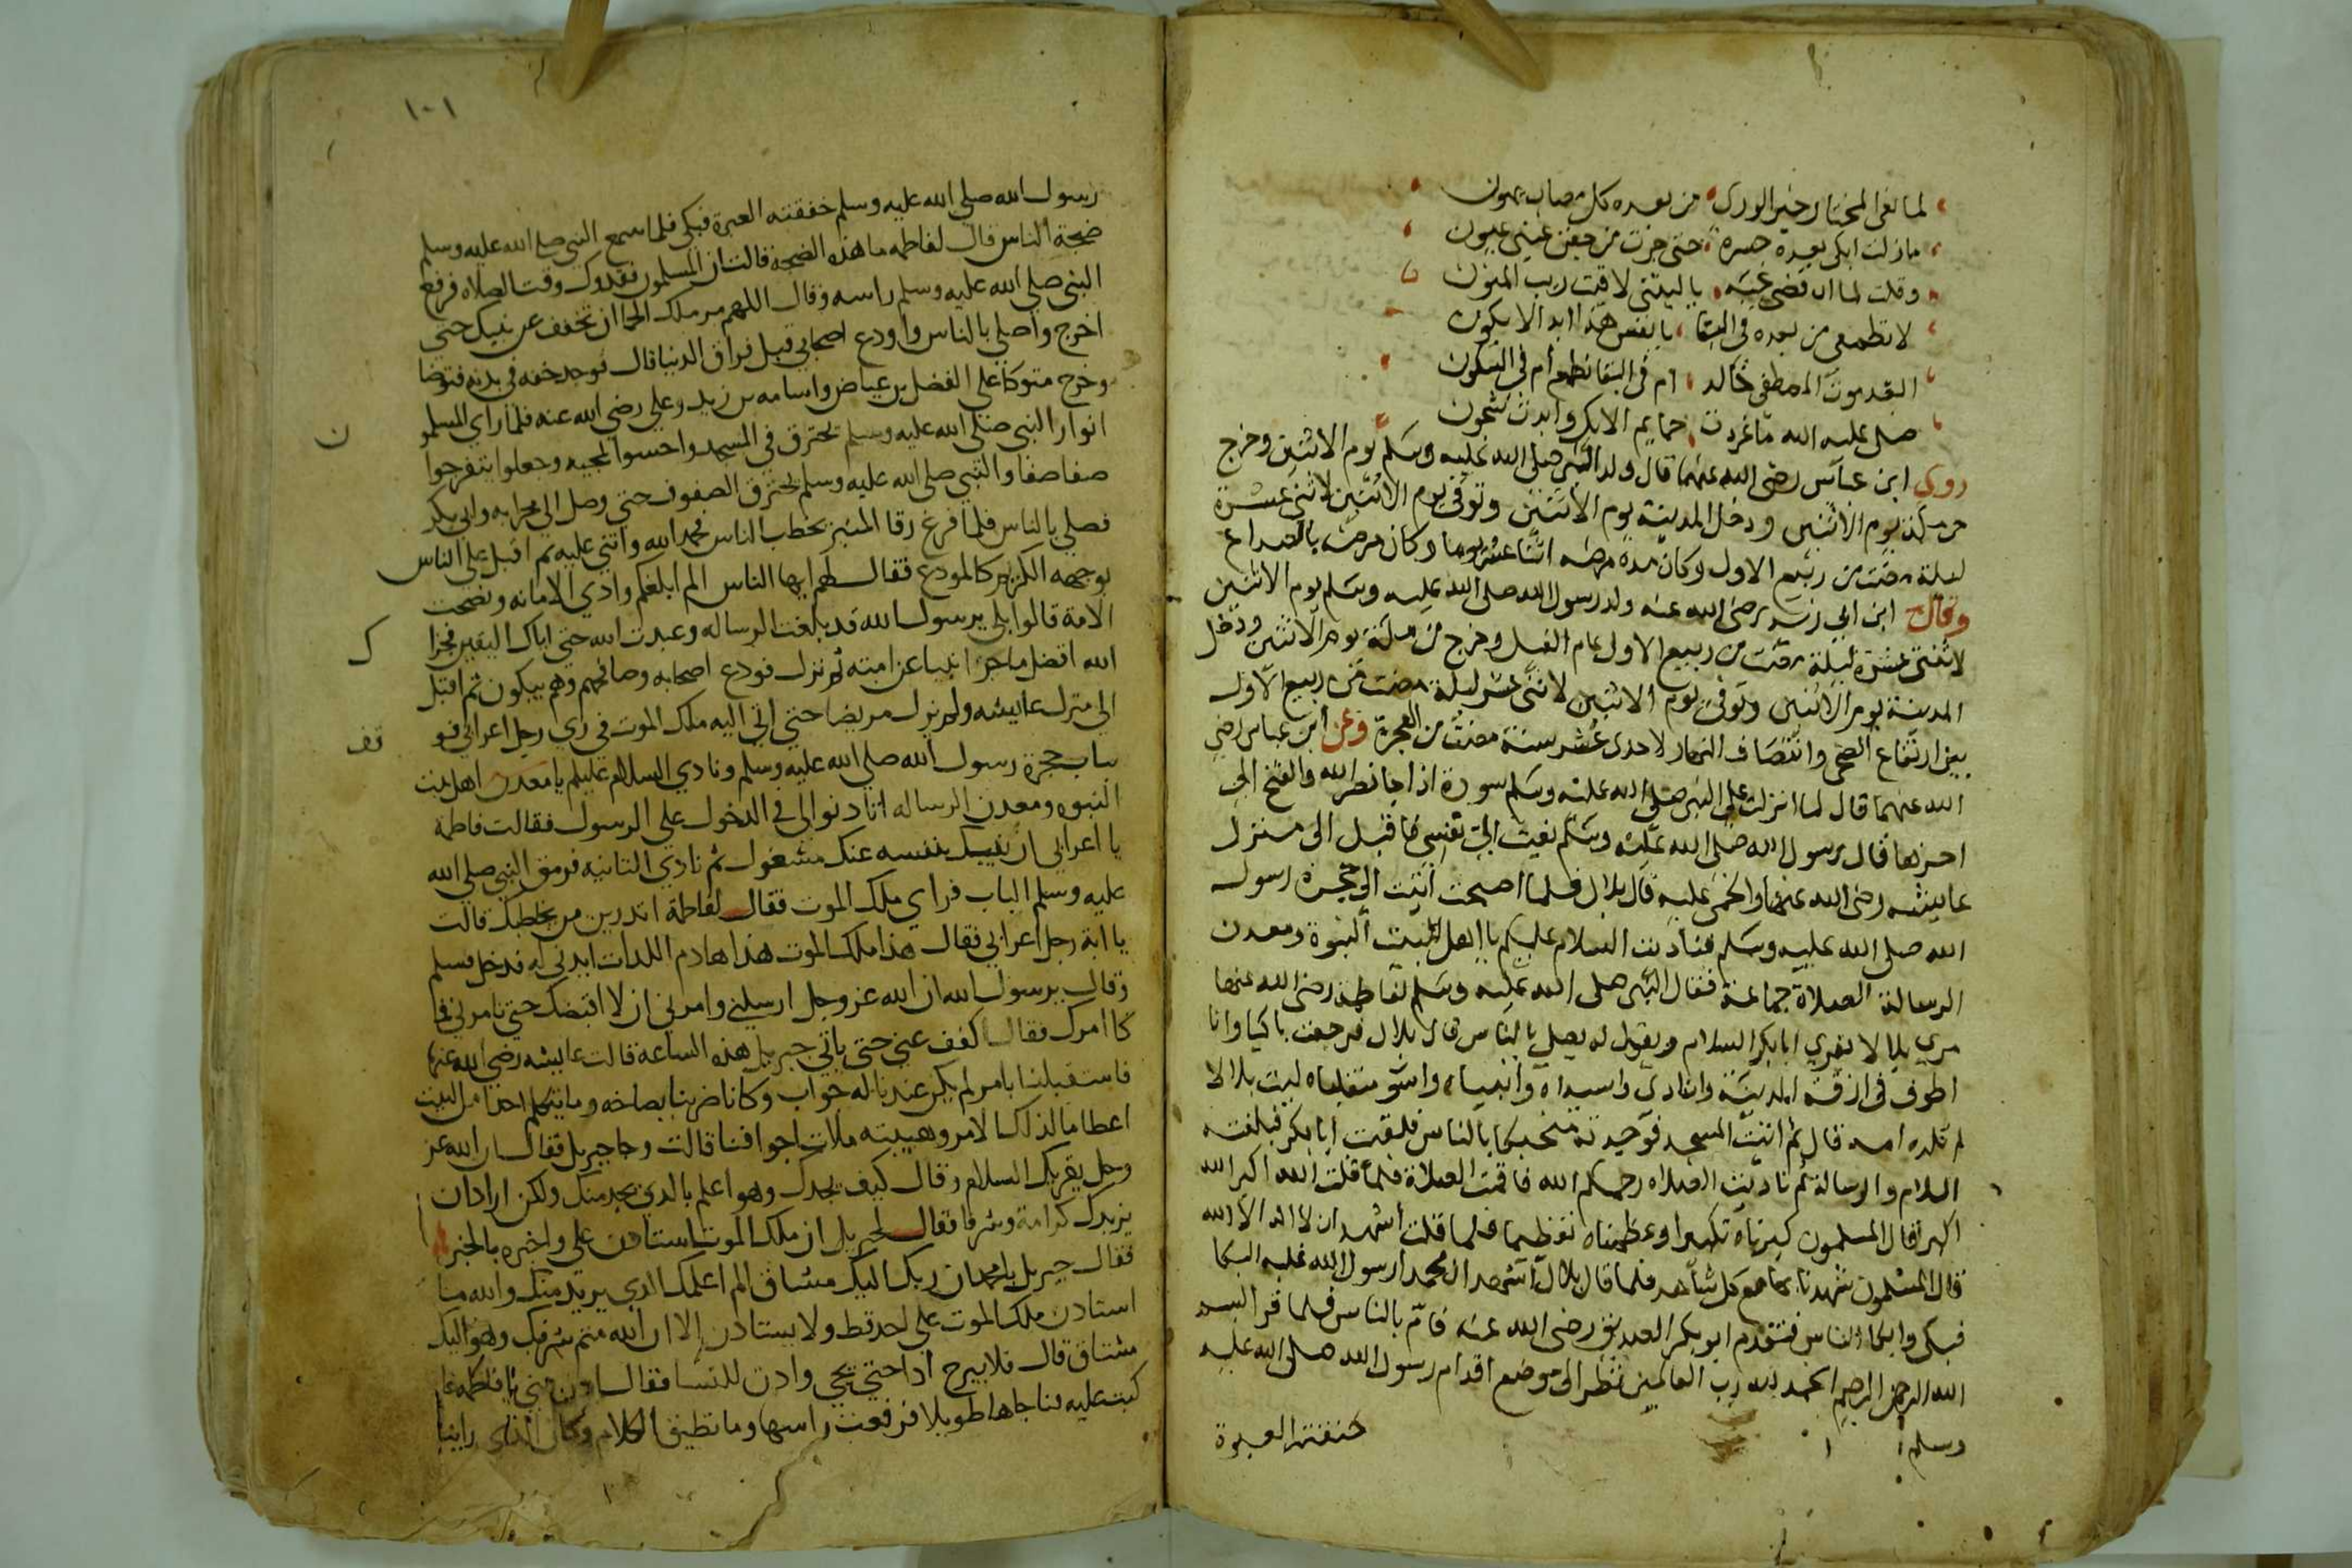 لما نعى المختار خير الورى من بعده كل مصاب يهون
ما زلت ابكى بعده حسرة حتى جرت من جفن عينى عيون
وقلت لما ان قضى نحبه يا ليتنى لاقيت ريب المنون
لا تطمعى من بعده فى البقا يا نفس هذا ابدا لا يكون
ابعد موت المصطفى خالد ام فى البقا نطمع ام فى السكون
صلى عليه الله ما غردت حمايم الايك وابدت شجون
روي ابن عباس رضى الله عنهما قال ولد النبى صلى الله عليه وسلم يوم الاثنين وخرج
من مكة يوم الاثنين ودخل المدينة يوم الاثنين وتوفى يوم الاثنين لاثنى عشرة
ليلة مضت من ربيع الاول وكان مدة مرضه اثنا عشر يوما وكان مرضه بالصداع
وقال ابن ابي زيد رضى الله عنه ولد رسول الله صلى الله عليه وسلم يوم الاثنين
لاثنتى عشرة ليلة مضت من ربيع الاول عام الفيل وخرج من مكة يوم الاثنين ودخل
المدينة يوم الاثنين وتوفى يوم الاثنين لاثنى عشر ليلة مضت من ربيع الاول
بين ارتفاع الضحى وانتصاف النهار لاحدى عشر سنة مضت من الهجرة وعن ابن عباس رضي
الله عنهما قال لما انزلت على النبى صلى الله عليه وسلم سورة اذا جا نصر الله والفتح الى
اخرها قال رسول الله صلى الله عليه وسلم نعيت الي نفسي فاقبل الى منزل
عاييشه رضى الله عنها والحمى عليه قال بلال فلما اصبحت اتيت الى حجرة رسول
الله صلى الله عليه وسلم فناديت السلام عليكم يا اهل بيت النبوة ومعدن
الرسالة الصلاة جماعة فقال النبى صلى الله عليه وسلم لفاطمة رضى الله عنها
مري بلالا يقري ابا بكر السلام ويقول له يصلي بالناس قال بلال فرجعت باكيا وانا
اطوف فى ازقة المدينة وانادي واسيداه وانبياه واسو منقلباه ليت بلالا
لم تلده امه قال ثم اتيت المسجد فوجدته بالناس فلقيت ابا بكر فبلغته
السلام والرسالة ثم ناديت الصلاه رحمكم الله فاقمت الصلاة فلما قلت الله اكبر الله
اكبر قال المسلمون كبرناه تكبيرا وعظمناه تعظيما فلما قلت اشهد ان لا اله الا الله
قال المسلمون شهدنا بها مع كل شاهد فلما قال بلال اشهد ان محمدا رسول الله غلبه البكا
فبكى وابكا الناس فتقدم ابو بكر الصديق رضى الله عنه فامّ بالناس فلما قرا بسم
الله الرحمن الرحيم الحمد لله رب العالمين نظر الى موضع اقدام رسول الله صلى الله عليه
وسلم خنقته العبرة
١٠١
رسول الله صلي الله عليه وسلم خنقته العبرة فبكى فلما سمع النبى صلى الله عليه وسلم
ضجة الناس قال لفاطمه ما هذه الضجة قالت ان المسلمون فقدوك وقت الصلاه فرفع
النبى صلي الله عليه وسلم راسه وقال اللهم مر ملك الحما ان تخفف عن نبيك حتى
اخرج واصلي بالناس واودع اصحابي قبل فراق الدنيا قال فوجد خفه فى بدنه فتوضا
وخرج متوكا على الفضل بن عياض واسامه بن زيد وعلي رضي الله عنه فلما راي المسلمو
ن
انوار النبي صلى الله عليه وسلم تخترق في المسجد واحسوا بمجيه وجعلوا يتفرجوا
صفا صفا والنبي صلى الله عليه وسلم يخترق الصفوف حتى وصل الي محرابه وابي بكر
فصلي بالناس فلما فرغ رقا المنبر يخطب الناس فحمد الله واثني عليه ثم اقبل على الناس
بوجهه الكريم كالمودع فقال لهم ايها الناس الم ابلغكم وادي الامانه ونصحت
الامة قالوا بلى يرسول الله قد بلغت الرساله وعبدت الله حتى اتاك اليقين فجزا
ك
الله افضل ما جزا نبيا عن امته ثم نزل فودع اصحابه وصافحهم وهم يبكون ثم اقبل
الي منزل عاييشه ولم يزل مريضا حتى اتي اليه ملك الموت فى زي رجل اعرابي فو
قف
بباب حجرة رسول الله صلي الله عليه وسلم ونادي السلام عليكم يا معدن اهل بيت
النبوه ومعدن الرساله اتادنوا لى في الدخول علي الرسول فقالت فاطمة
يا اعرابي ان نبيك بنفسه عنك مشغول ثم نادي الثانيه فرمق النبي صلي الله
عليه وسلم الباب فراي ملك الموت فقال لفاطمة اتدرين من يخاطبك قالت
يا ابة رجل اعرابي فقال هذا ملك الموت هذا هادم اللدات ايدني له فدخل فسلم
وقال يرسول الله ان الله عز وجل ارسلني وامرني ان لا اقبضك حتى تامرني فما
كا امرك فقال اكفف عني حتى ياتي جبريل هذه الساعة قالت عاييشه رضي الله عنها
فاستقبلنا بامر لم يكن عندنا له جواب وكانا ضربنا بصاخه وما يتكلم احدا من البيت
اعطاما لذلك الامر وهيبته ملات اجوافنا قالت وجا جبريل فقال ان الله عز
وجل يقريك السلام وقال كيف تجدك وهو اعلم بالدي تجد منك ولكن اراد ان
يزيدك كرامة وشرفا فقال لجبريل ان ملك الموت استادن علي واخبره بالخبر
فقال جبريل يا محمد ان ربك اليك مشتاق الم اعلمك الدي يريد منك والله ما
استادن ملك الموت على احد قط ولا يستادن إلا ان الله متم شرفك وهو اليك
مشتاق قال فلا يبرح اذا حتى يجي وادن للنسا فقال ادن مني يا فاطمه فا
كبت عليه فناجاها طويلا فرفعت راسها وما تطيق الكلام وكان الذي راينا